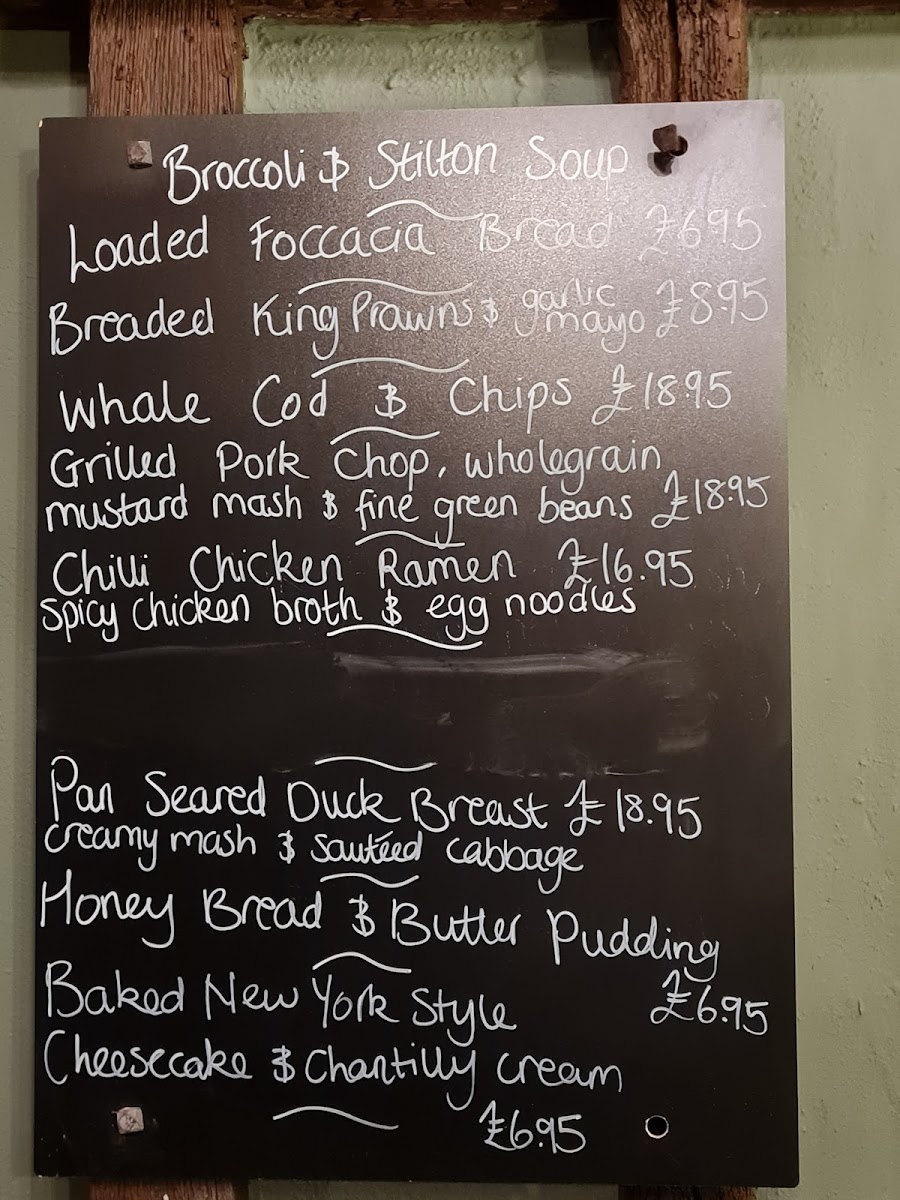 Broccoli & Stilton Soup
Loaded Foccacia Bread £6.95
Breaded King Prawns & garlic mayo £8.95
Whale Cod & Chips £18.95
Grilled Pork Chop, wholegrain
mustard mash & fine green beans £18.95
Chilli Chicken Ramen £16.95
spicy chicken broth & egg noodles
Pan Seared Duck Breast £18.95
creamy mash & sautéed cabbage
Honey Bread & Butter Pudding
£6.95
Baked New York Style
Cheesecake & Chantilly cream
£6.95